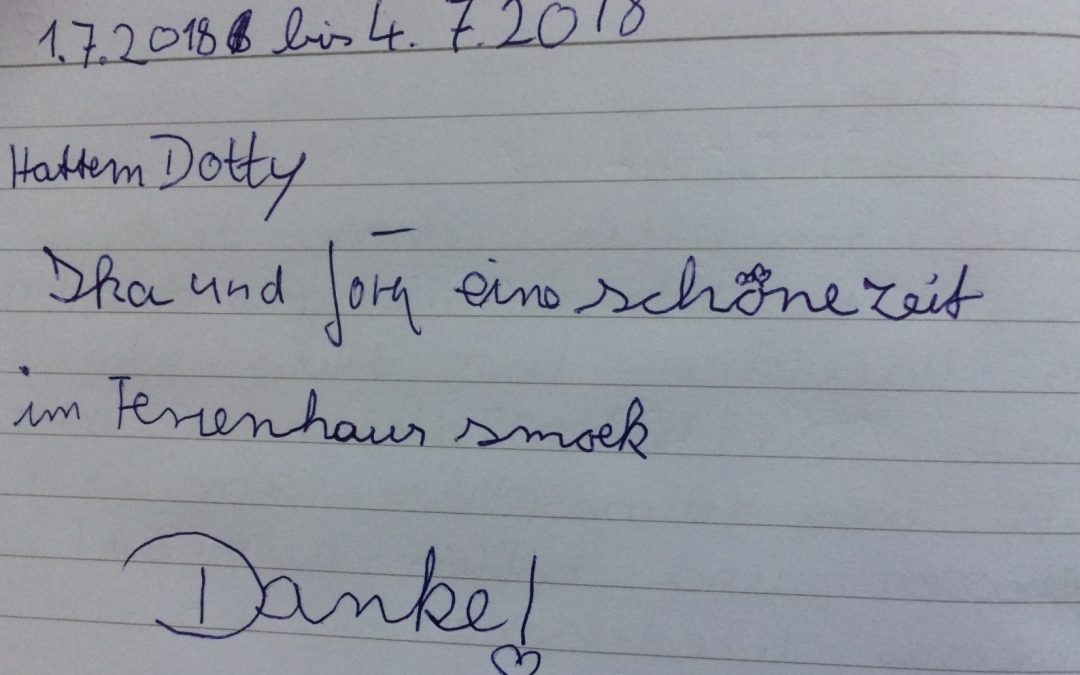 1.7.2018 bis 4.7.2018
Hattem Dotty
Ika und Jörg eine schöne Zeit
im Ferienhaus smoek
Danke!